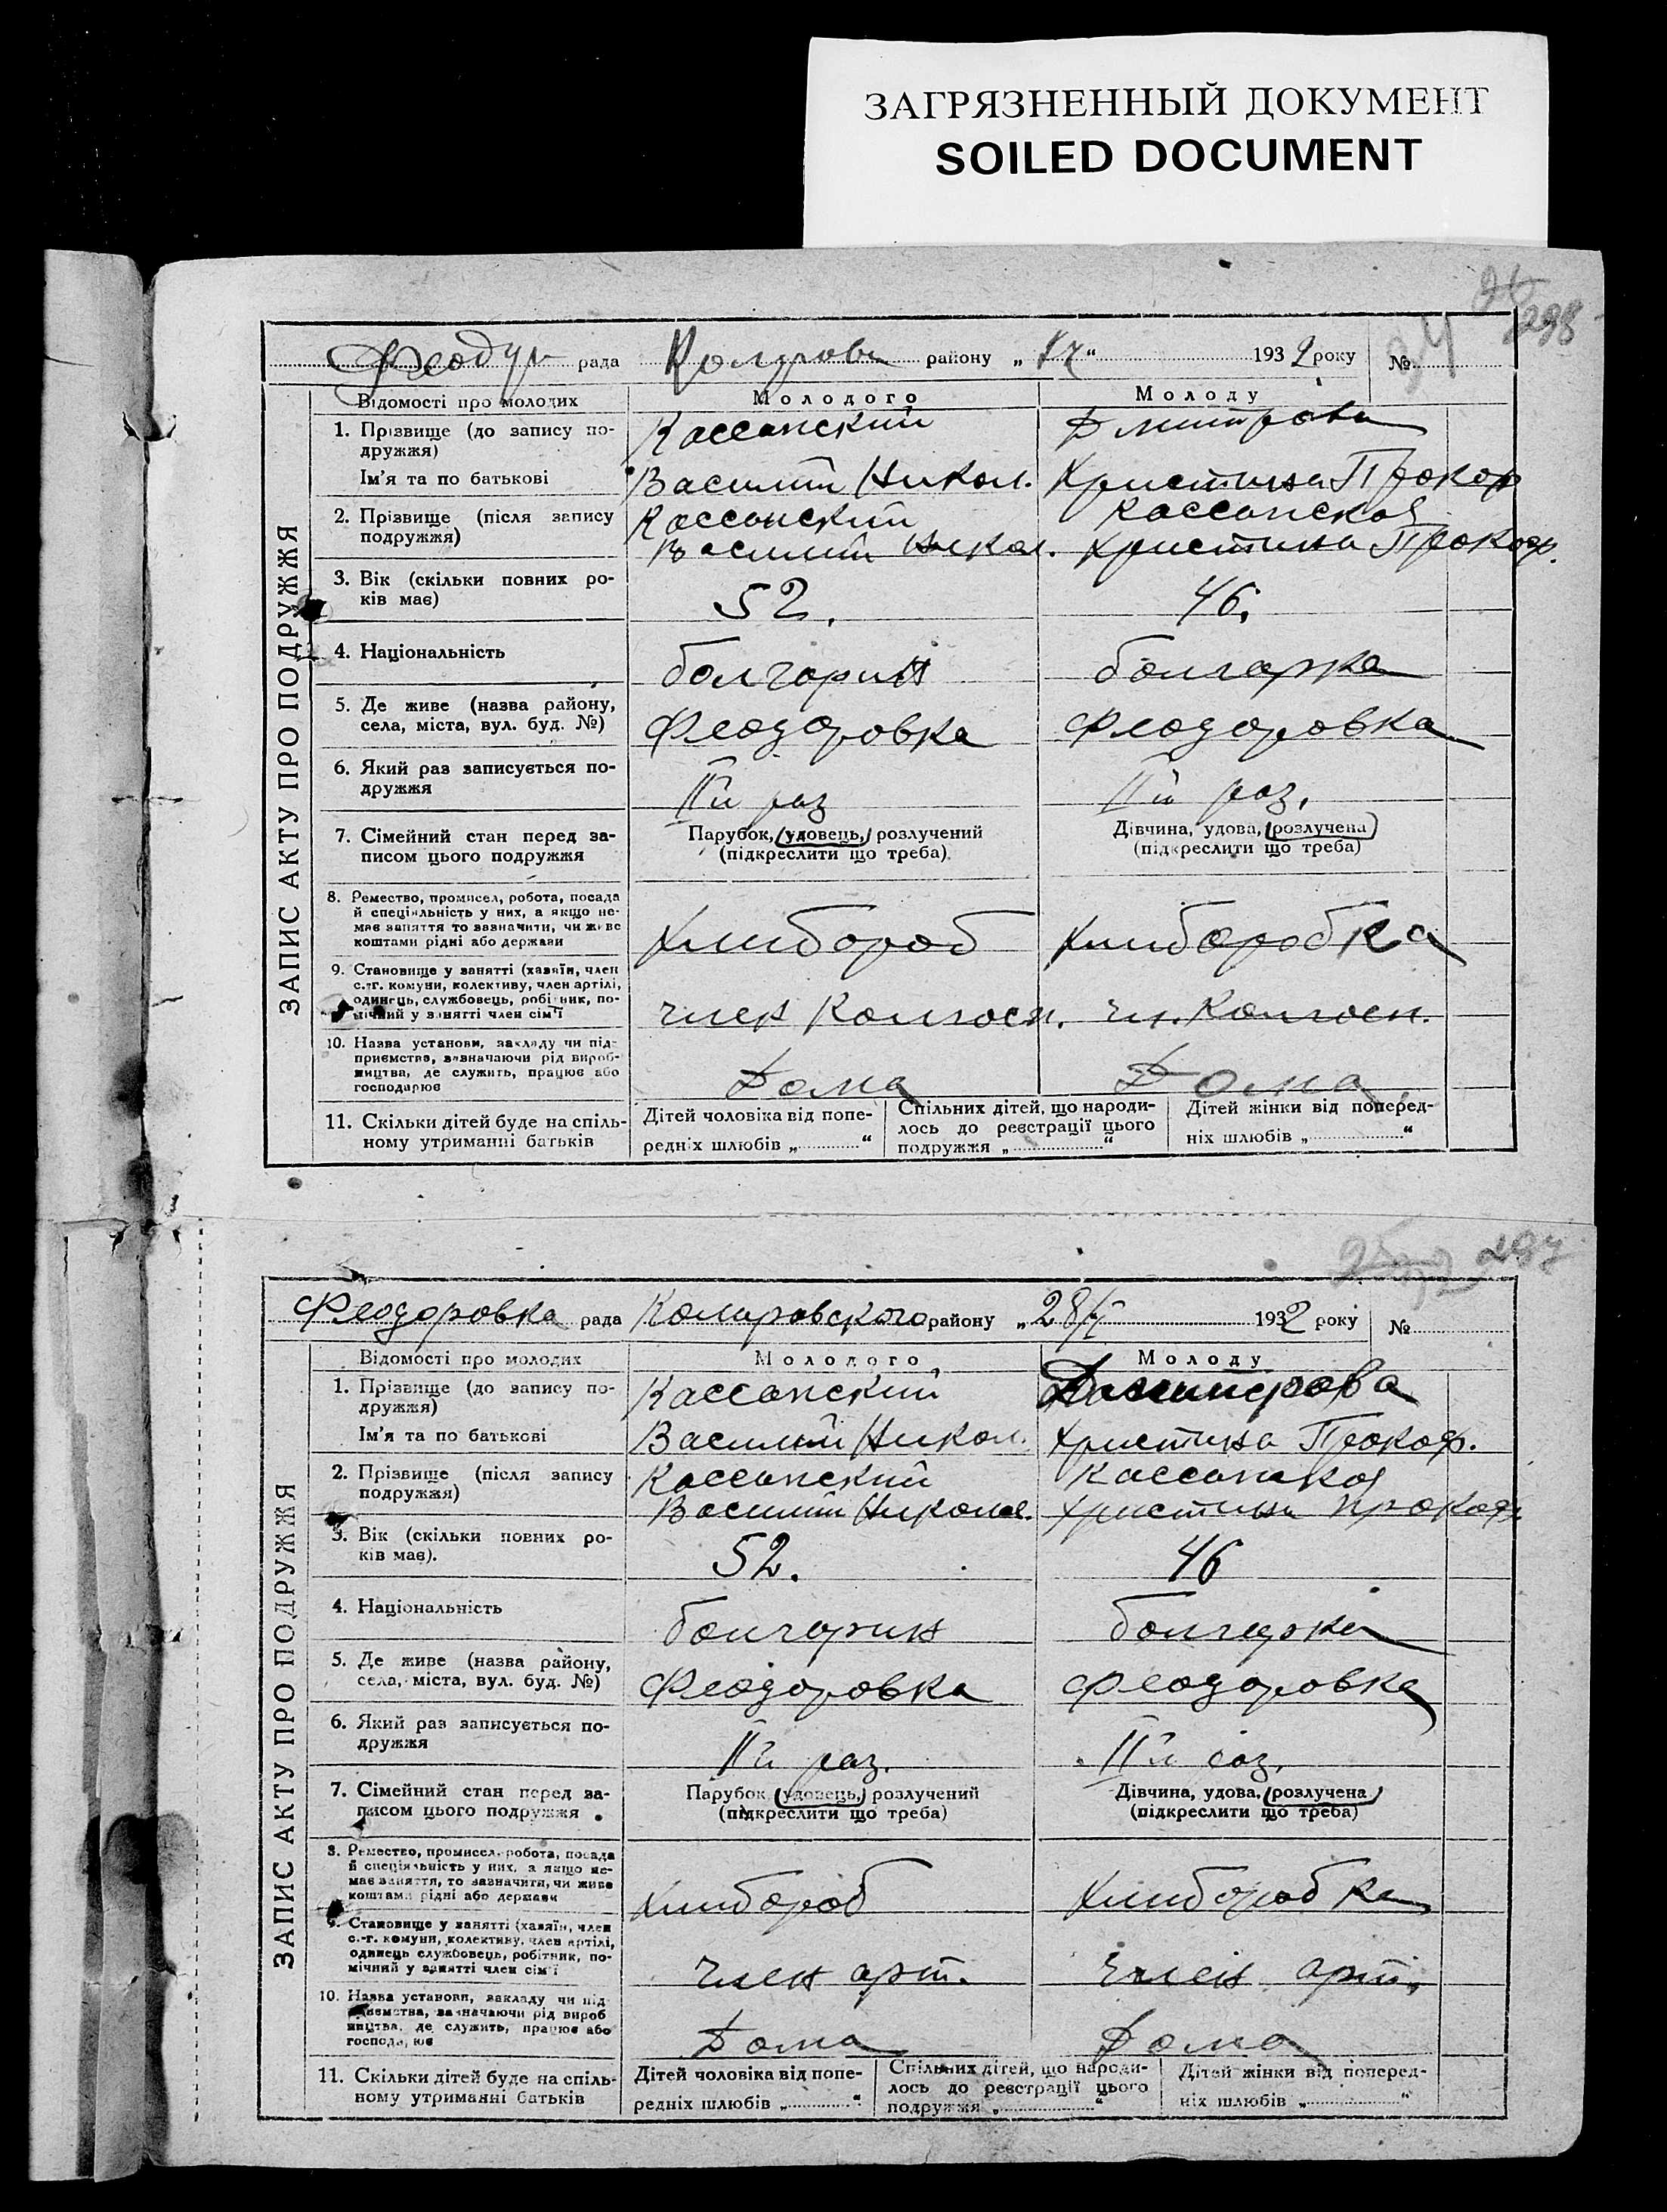 ЗАГРЯЗНЕННЫЙ ДОКУМЕНТ
SOILED DOCUMENT
298
рада району „ “ 1932 року №
ЗАПИС АКТУ ПРО ПОДРУЖЖЯ
Відомості про молодих Молодого Молоду
1. Прізвище (до запису по-
дружжя)
Кассанский Дмитрова
Ім'я та по батькові Василий Никол. Христина Прокоф
2. Прізвище (після запису
подружжя)
Кассанский Кассанская
Василий Никол. Христина Прокоф.
3. Вік (скільки повних ро-
ків має)
52. 46.
4. Національність болгарин болгарка
5. Де живе (назва району,
села, міста, вул. буд. №)
Феодоровка Феодоровка
6. Який раз записується по-
дружжя
IIй раз IIй раз.
7. Сімейний стан перед за-
писом цього подружжя
Парубок, удовець, розлучений
(підкреслити що треба)
Дівчина, удова, розлучена
(підкреслити що треба)
8. Ремество, промисел, робота, посада
й спеціяльність у них, а якщо не-
має заняття то зазначити, чи живе
коштами рідні або держави
Хлибороб Хлиборобка
9. Становище у занятті (хазяїн, член
с.-г. комуни, колективу, член артілі,
одинець, службовець, робітник, по-
мічний у занятті член сім'ї
член Колгосп. чл. Колгосп.
10. Назва установи, закладу чи під-
приємства, зазначаючи рід вироб-
ництва, де служить, працює або
господарює
Дома Дома
11. Скільки дітей буде на спіль-
ному утриманні батьків
Дітей чоловіка від попе-
редніх шлюбів „ “
Спільних дітей, що народи-
лось до реєстрації цього
подружжя „ “
Дітей жінки від поперед-
ніх шлюбів „ “
297
Феодоровка рада Коларовского району „28/ 1932 року №
ЗАПИС АКТУ ПРО ПОДРУЖЖЯ
Відомості про молодих Молодого Молоду
1. Прізвище (до запису по-
дружжя)
Кассанский Дмитрова
Ім'я та по батькові Василий Никол. Христина Прокоф.
2. Прізвище (після запису
подружжя)
Кассанский Кассанская
Василий Никола. Христина Прокоф.
3. Вік (скільки повних ро-
ків має).
52. 46
4. Національність болгарин болгарка
5. Де живе (назва району,
села, міста, вул. буд. №)
Феодоровка Феодоровка
6. Який раз записується по-
дружжя
IIй раз. IIй раз.
7. Сімейний стан перед за-
писом цього подружжя
Парубок, удовець, розлучений
(підкреслити що треба)
Дівчина, удова, розлучена
(підкреслити що треба)
8. Ремество, промисел, робота, посада
й спеціяльність у них, а якщо не-
має заняття, то зазначити, чи живе
коштами рідні або держави
Хлибороб Хлиборобка
9. Становище у занятті (хазяїн, член
с.-г. комуни, колективу, член артілі,
одинець службовець, робітник, по-
мічний у занятті член сім'ї
член арт. член арт.
10. Назва установи, закладу чи під-
приємства, зазначаючи рід вироб
ництва, де служить, працює або
господарює
Дома Дома
11. Скільки дітей буде на спіль-
ному утриманні батьків
Дітей чоловіка від попе-
редніх шлюбів „ “
Спільних дітей, що народи-
лось до реєстрації цього
подружжя „ “
Дітей жінки від поперед-
ніх шлюбів „ “